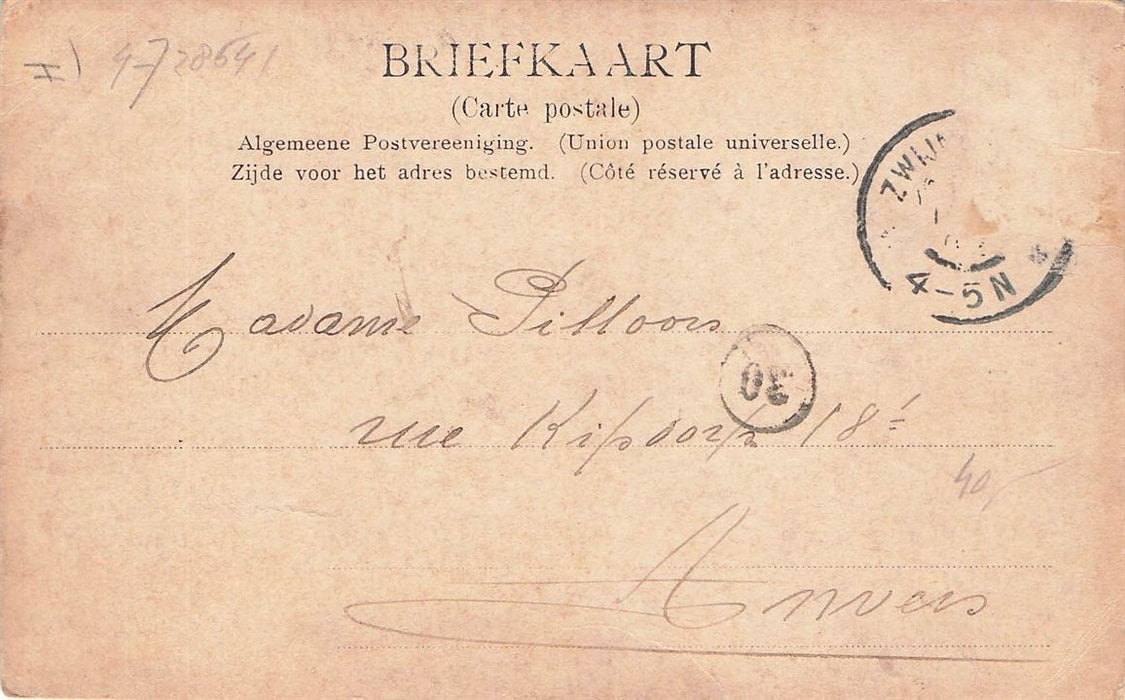 BRIEFKAART
(Carte postale)
Algemeene Postvereeniging. (Union postale universelle.)
Zijde voor het adres bestemd. (Côté réservé à l'adresse.)
4-5N
Madame Pilloors
30
rue Kipdorp 18
40,-
Anvers